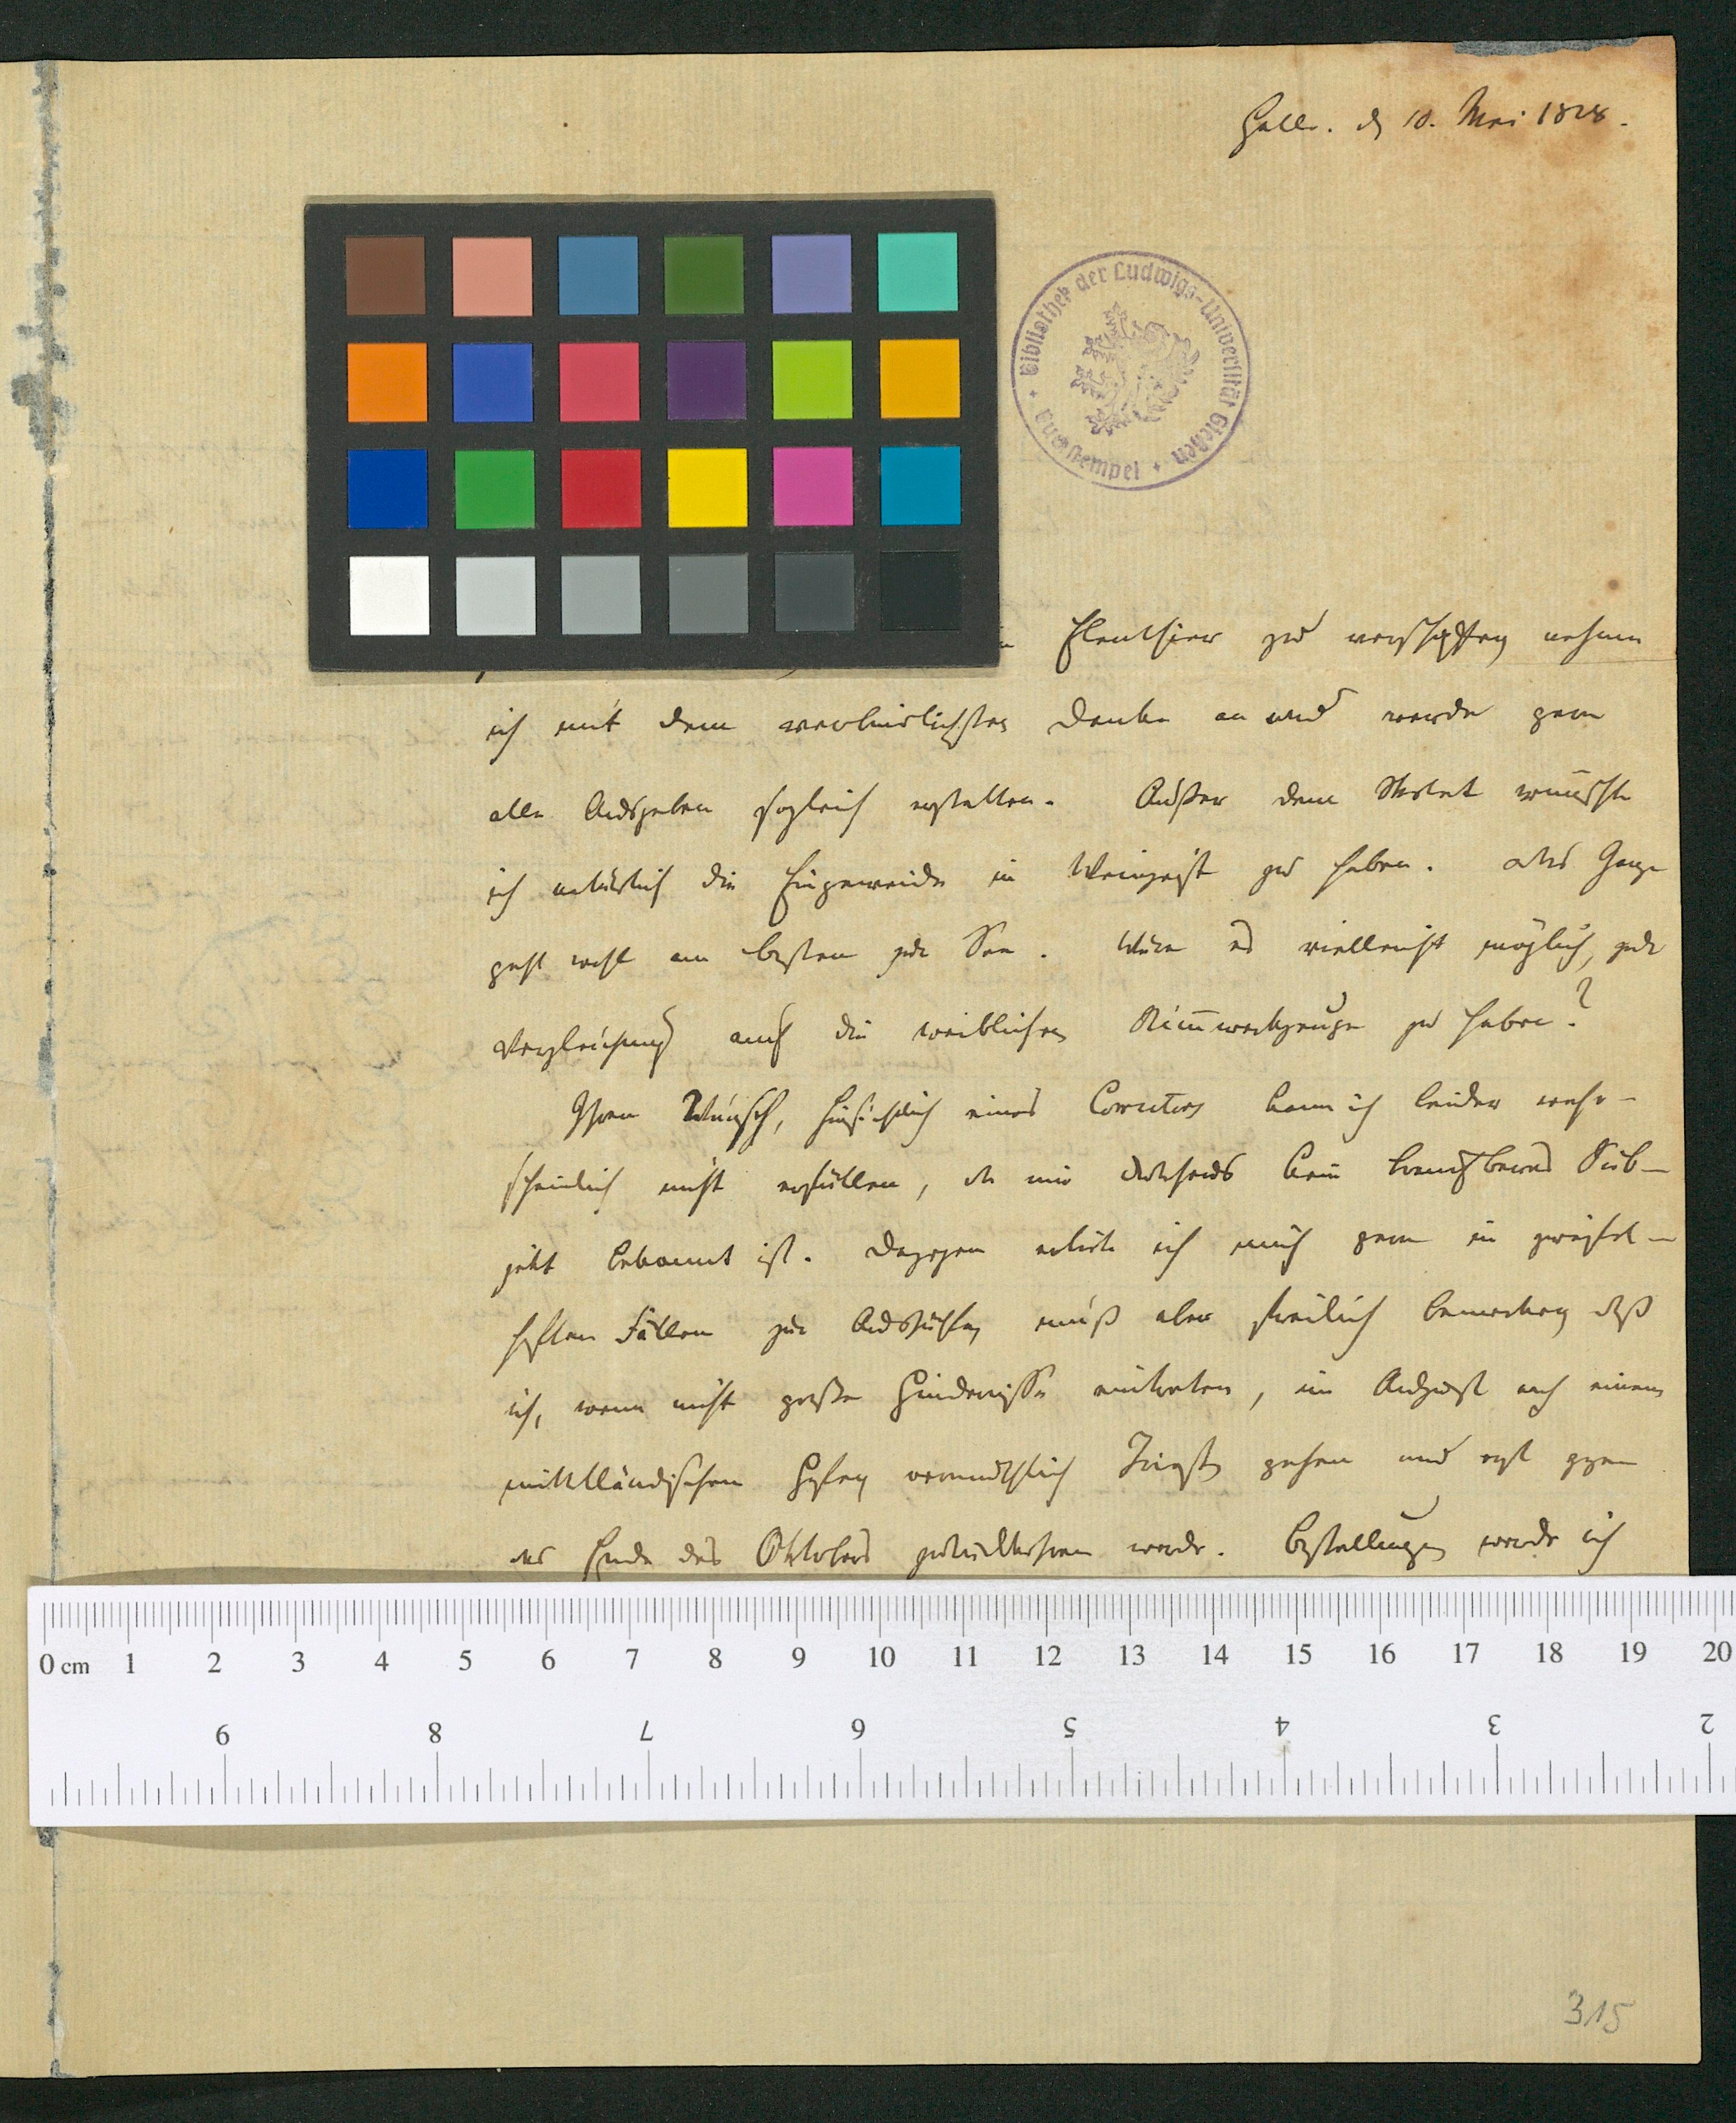 Halle. d 10. Mai 1828.
Bibliothek der Ludwigs-Universität Gießen
Tuschstempel
Elenthier zu verschaffen nehme
ich mit dem verbindlichsten Danke an und werde gern
alle Ausgaben sogleich erstatten. Außer dem Skelet wünschte
ich natürlich die Eingeweide in Weingeist zu haben. das Ganze
geht wohl am besten zur See. Wäre es vielleicht möglich, zur
Vergleichung auch die weiblichen zu haben?
Ihren Wunsch, hinsichtlich eines kann ich leider wahr-
scheinlich nicht erfüllen, da mir durchaus kein brauchbares Sub-
jekt bekannt ist. Dagegen erbiete ich mich gern in zweifel-
haften Fällen zur Aushülfe, muß aber freilich bemerken daß
ich, wenn nicht große Hindernisse eintreten, im August nach einem
mittelländischen Hafen vermuthlich Triest gehen und erst gegen
das Ende des Oktobers zurückkehren werde. Bestellungen werde ich
0 cm 1 2 3 4 5 6 7 8 9 10 11 12 13 14 15 16 17 18 19 20
9 8 7 6 5 4 3 2
315